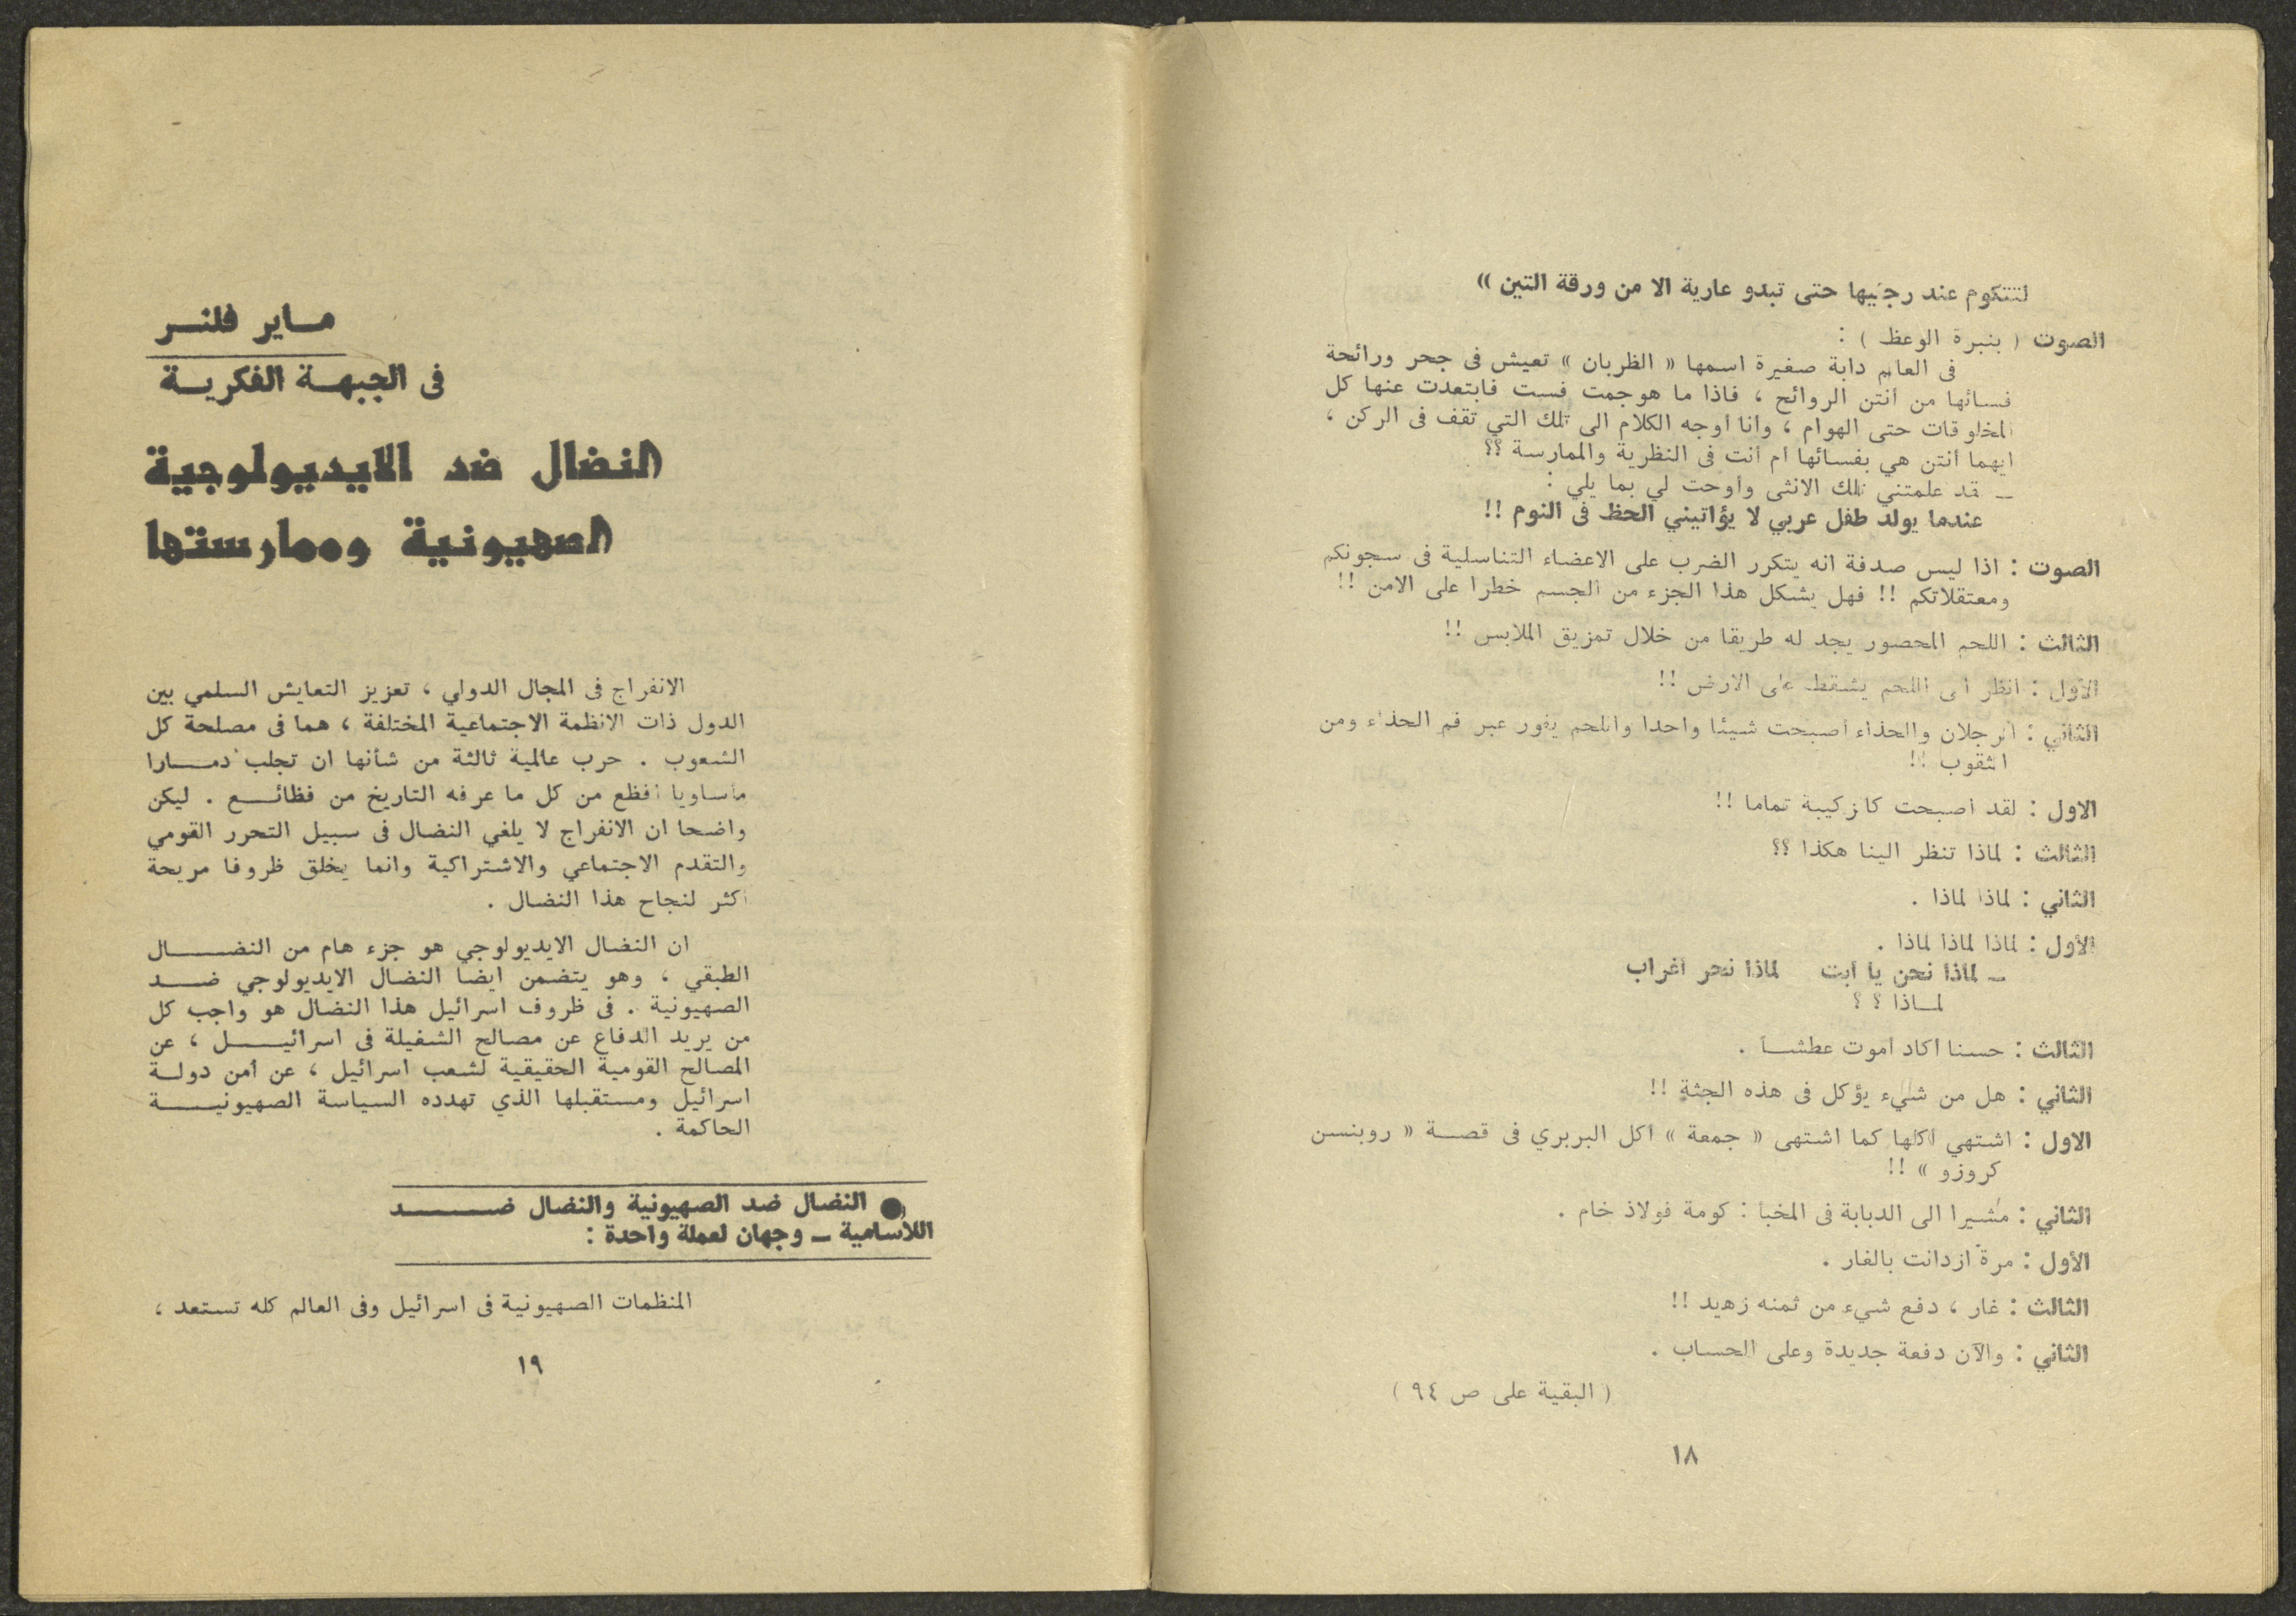 لتتكوم عند رجليها حتى تبدو عارية الا من ورقة التين »
الصوت ( بنبرة الوعظ ) :
فى العالم دابة صغيرة اسمها « الظربان » تعيش فى جحر ورائحة
فسائها من أنتن الروائح ، فاذا ما هوجمت فست فابتعدت عنها كل
المخلوقات حتى الهوام ، وأنا أوجه الكلام الى تلك التي تقف فى الركن ،
أيهما أنتن هي بفسائها أم أنت فى النظرية والممارسة ؟؟
ــ قد علمتني تلك الانثى وأوحت لي بما يلي :
عندما يولد طفل عربي لا يؤاتيني الحظ فى النوم !!
الصوت : اذا ليس صدفة انه يتكرر الضرب على الاعضاء التناسلية فى سجونكم
ومعتقلاتكم !! فهل يشكل هذا الجزء من الجسم خطرا على الامن !!
الثالث : اللحم المحصور يجد له طريقا من خلال تمزيق الملابس !!
الأول : انظر الى اللحم يشقط على الارض !!
الثاني : الرجلان والحذاء أصبحت شيئا واحدا واللحم يفور عبر فم الحذاء ومن
الثقوب !!
الاول : لقد أصبحت كالزكيبة تماما !!
الثالث : لماذا تنظر الينا هكذا ؟؟
الثاني : لماذا لماذا .
الأول : لماذا لماذا لماذا .
ــ لماذا نحن يا أبت لماذا نحن أغراب
لمــاذا ؟ ؟
الثالث : حسنا أكاد أموت عطشــا .
الثاني : هل من شيء يؤكل فى هذه الجثة !!
الاول : اشتهي أكلها كما اشتهى « جمعة » أكل البربري فى قصــة « روبنسن
كروزو » !!
الثاني : مشيرا الى الدبابة فى المخبأ : كومة فولاذ خام .
الأول : مرة ازدانت بالغار .
الثالث : غار ، دفع شيء من ثمنه زهيد !!
الثاني : والآن دفعة جديدة وعلى الحساب .
( البقية على ص ٩٤ )
١٨
مــاير فلنــر
فى الجبهــة الفكريــة
النضال ضد الايديولوجية
الصهيونية وممارستها
الانفراج فى المجال الدولي ، تعزيز التعايش السلمي بين
الدول ذات الانظمة الاجتماعية المختلفة ، هما فى مصلحة كل
الشعوب . حرب عالمية ثالثة من شأنها ان تجلب دمــارا
مأساويا افظع من كل ما عرفه التاريخ من فظائــع . ليكن
واضحا ان الانفراج لا يلغي النضال فى سبيل التحرر القومي
والتقدم الاجتماعي والاشتراكية وانما يخلق ظروفا مريحة
أكثر لنجاح هذا النضال .
ان النضال الايديولوجي هو جزء هام من النضــال
الطبقي ، وهو يتضمن ايضا النضال الايديولوجي ضــد
الصهيونية . فى ظروف اسرائيل هذا النضال هو واجب كل
من يريد الدفاع عن مصالح الشغيلة فى اسرائيــل ، عن
المصالح القومية الحقيقية لشعب اسرائيل ، عن أمن دولــة
اسرائيل ومستقبلها الذي تهدده السياسة الصهيونيــة
الحاكمة .
● النضال ضد الصهيونية والنضال ضــد
اللاسامية ــ وجهان لعملة واحدة :
المنظمات الصهيونية فى اسرائيل وفى العالم كله تستعد ،
١٩